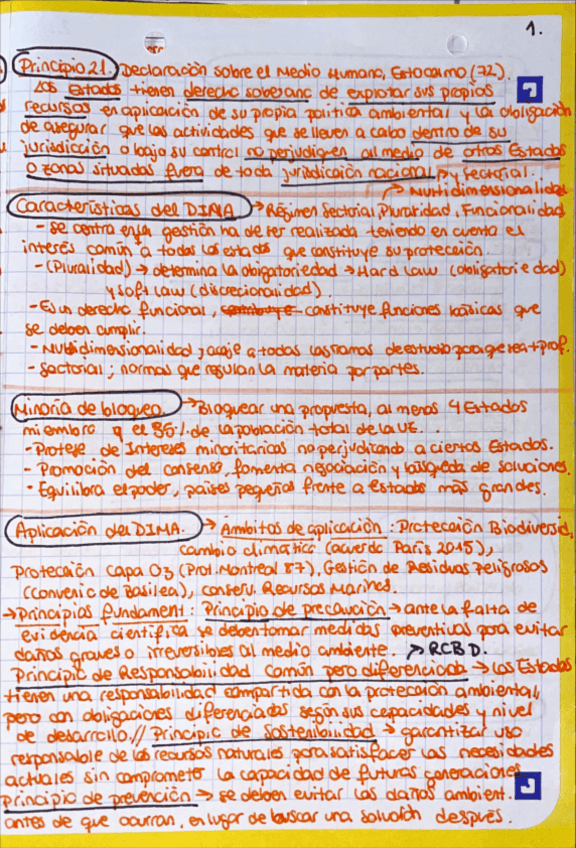 1.
Principio 21. Declaración sobre el Medio Humano, Estocolmo (72).
Los estados tienen derecho soberano de explotar sus propios
recursos en aplicación de su propia política ambiental y la obligación
de asegurar que las actividades que se lleven a cabo dentro de su
jurisdicción o bajo su control no perjudiquen al medio de otros Estados
o zonas situadas fuera de toda jurisdicción nacional.
y sectorial.
→ Multidimensionalidad
Características del DIMA → Régimen Sectorial, Pluralidad, Funcionalidad
- se centra en la gestión ha de ser realizada teniendo en cuenta el
interés común a todos los estados que constituye su protección.
- (Pluralidad) → determina la obligatoriedad → Hard Law (obligatoriedad)
y soft Law (discrecionalidad).
- Es un derecho funcional, constituye funciones básicas que
se deben cumplir.
- Multidimensionalidad, acoje a todas las ramas de estudio para que sea + prof.
- Sectorial; normas que regulan la materia por partes.
Minoría de bloqueo. → Bloquear una propuesta, al menos 4 Estados
miembro y el 35% de la población total de la UE.
- Protege de Intereses minoritarios no perjudicando a ciertos Estados.
- Promoción del consenso, fomenta negociación y búsqueda de soluciones.
- Equilibra el poder, países pequeños frente a estados más grandes.
Aplicación del DIMA. → Ámbitos de aplicación: Protección Biodiversid,
cambio climático (acuerdo París 2015),
Protección Capa O3 (Prot. Montreal 87), Gestión de Residuos Peligrosos
(Convenio de Basilea), conserv. Recursos Marinos.
→ Principios fundament: Principio de precaución → ante la falta de
evidencia científica se deben tomar medidas preventivas para evitar
daños graves o irreversibles al medio ambiente. → RCBD.
Principio de Responsabilidad común pero diferenciada → los Estados
tienen una responsabilidad compartida con la protección ambiental,
pero con obligaciones diferenciadas según sus capacidades y nivel
de desarrollo. // Principio de Sostenibilidad → garantizar uso
responsable de los recursos naturales para satisfacer las necesidades
actuales sin comprometer la capacidad de futuras generaciones
Principio de prevención → se deben evitar los daños ambient.
antes de que ocurran, en lugar de buscar una solución después.